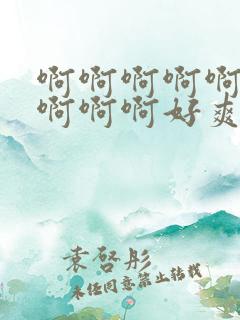 啊啊啊啊啊
啊啊啊好爽
袁啓彤
未经同意禁止转载